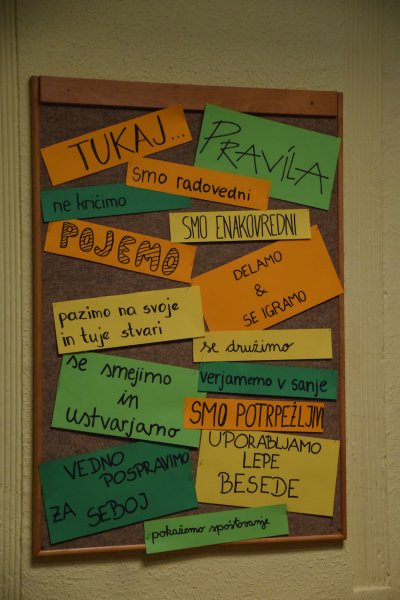 TUKAJ...
PRAVILA
smo radovedni
ne kričimo
SMO ENAKOVREDNI
POJEMO
DELAMO
&
SE IGRAMO
pazimo na svoje
in tuje stvari
se družimo
se smejimo
in
ustvarjamo
verjamemo v sanje
SMO POTRPEŽLJIVI
UPORABLJAMO
LEPE
BESEDE
VEDNO
POSPRAVIMO
ZA SEBOJ
pokažemo spoštovanje